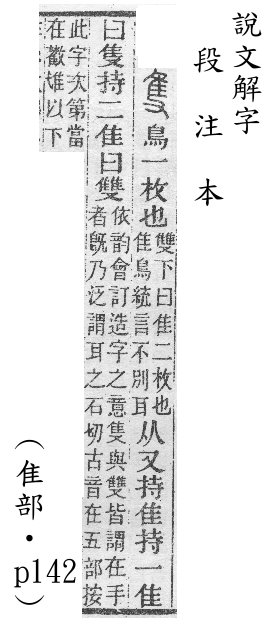 說文解字
段注本
隻鳥一枚也
雙下曰隹二枚也
隹鳥統言不別耳
从又持隹持一隹
曰隻持二隹曰雙
依韵會訂造字之意隻與雙皆謂在手
者旣乃泛謂耳之石切古音在五部按
此字次第當
在以下
（隹部・p142）